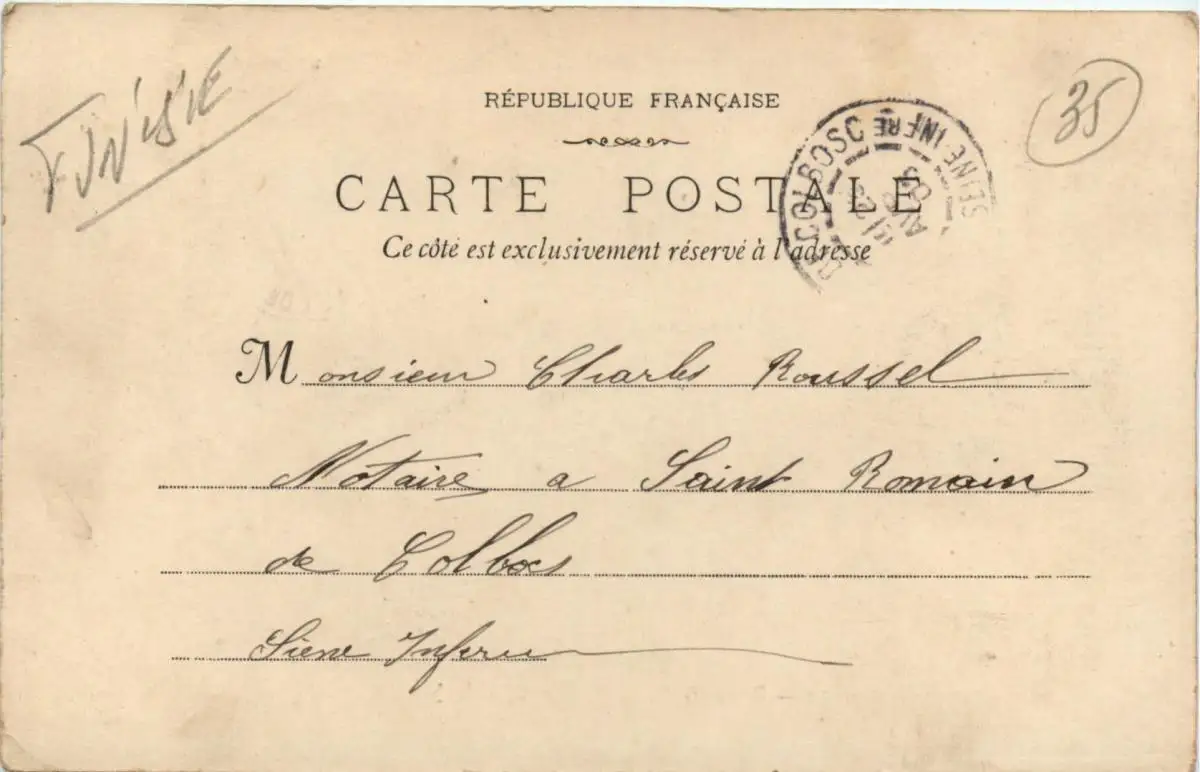 TUNISIE
35
RÉPUBLIQUE FRANÇAISE
CARTE POSTALE
Ce côté est exclusivement réservé à l'adresse
DE COLBOSC SEINE INFRE
AVR
03
Monsieur Charles Roussel
Notaire a Saint Romain
de Colbocs
Siene Inferu